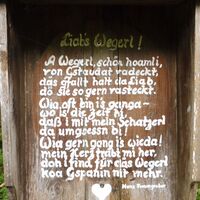 Liab's Wegerl!
A Wegerl, schön hoamli,
von Gstaudat vadeckt,
das gfallt halt da Liab,
dö sie so gern vasteckt.
Wia oft bin is ganga -
wo is die Zeit hi
daß i mit mein Schatzerl
da umgeessn bi!
Wia gern gang is wieda!
mein Herz trabt mi her,
doh i find für das Wegerl
koa Gspahin nit mehr.
Hans